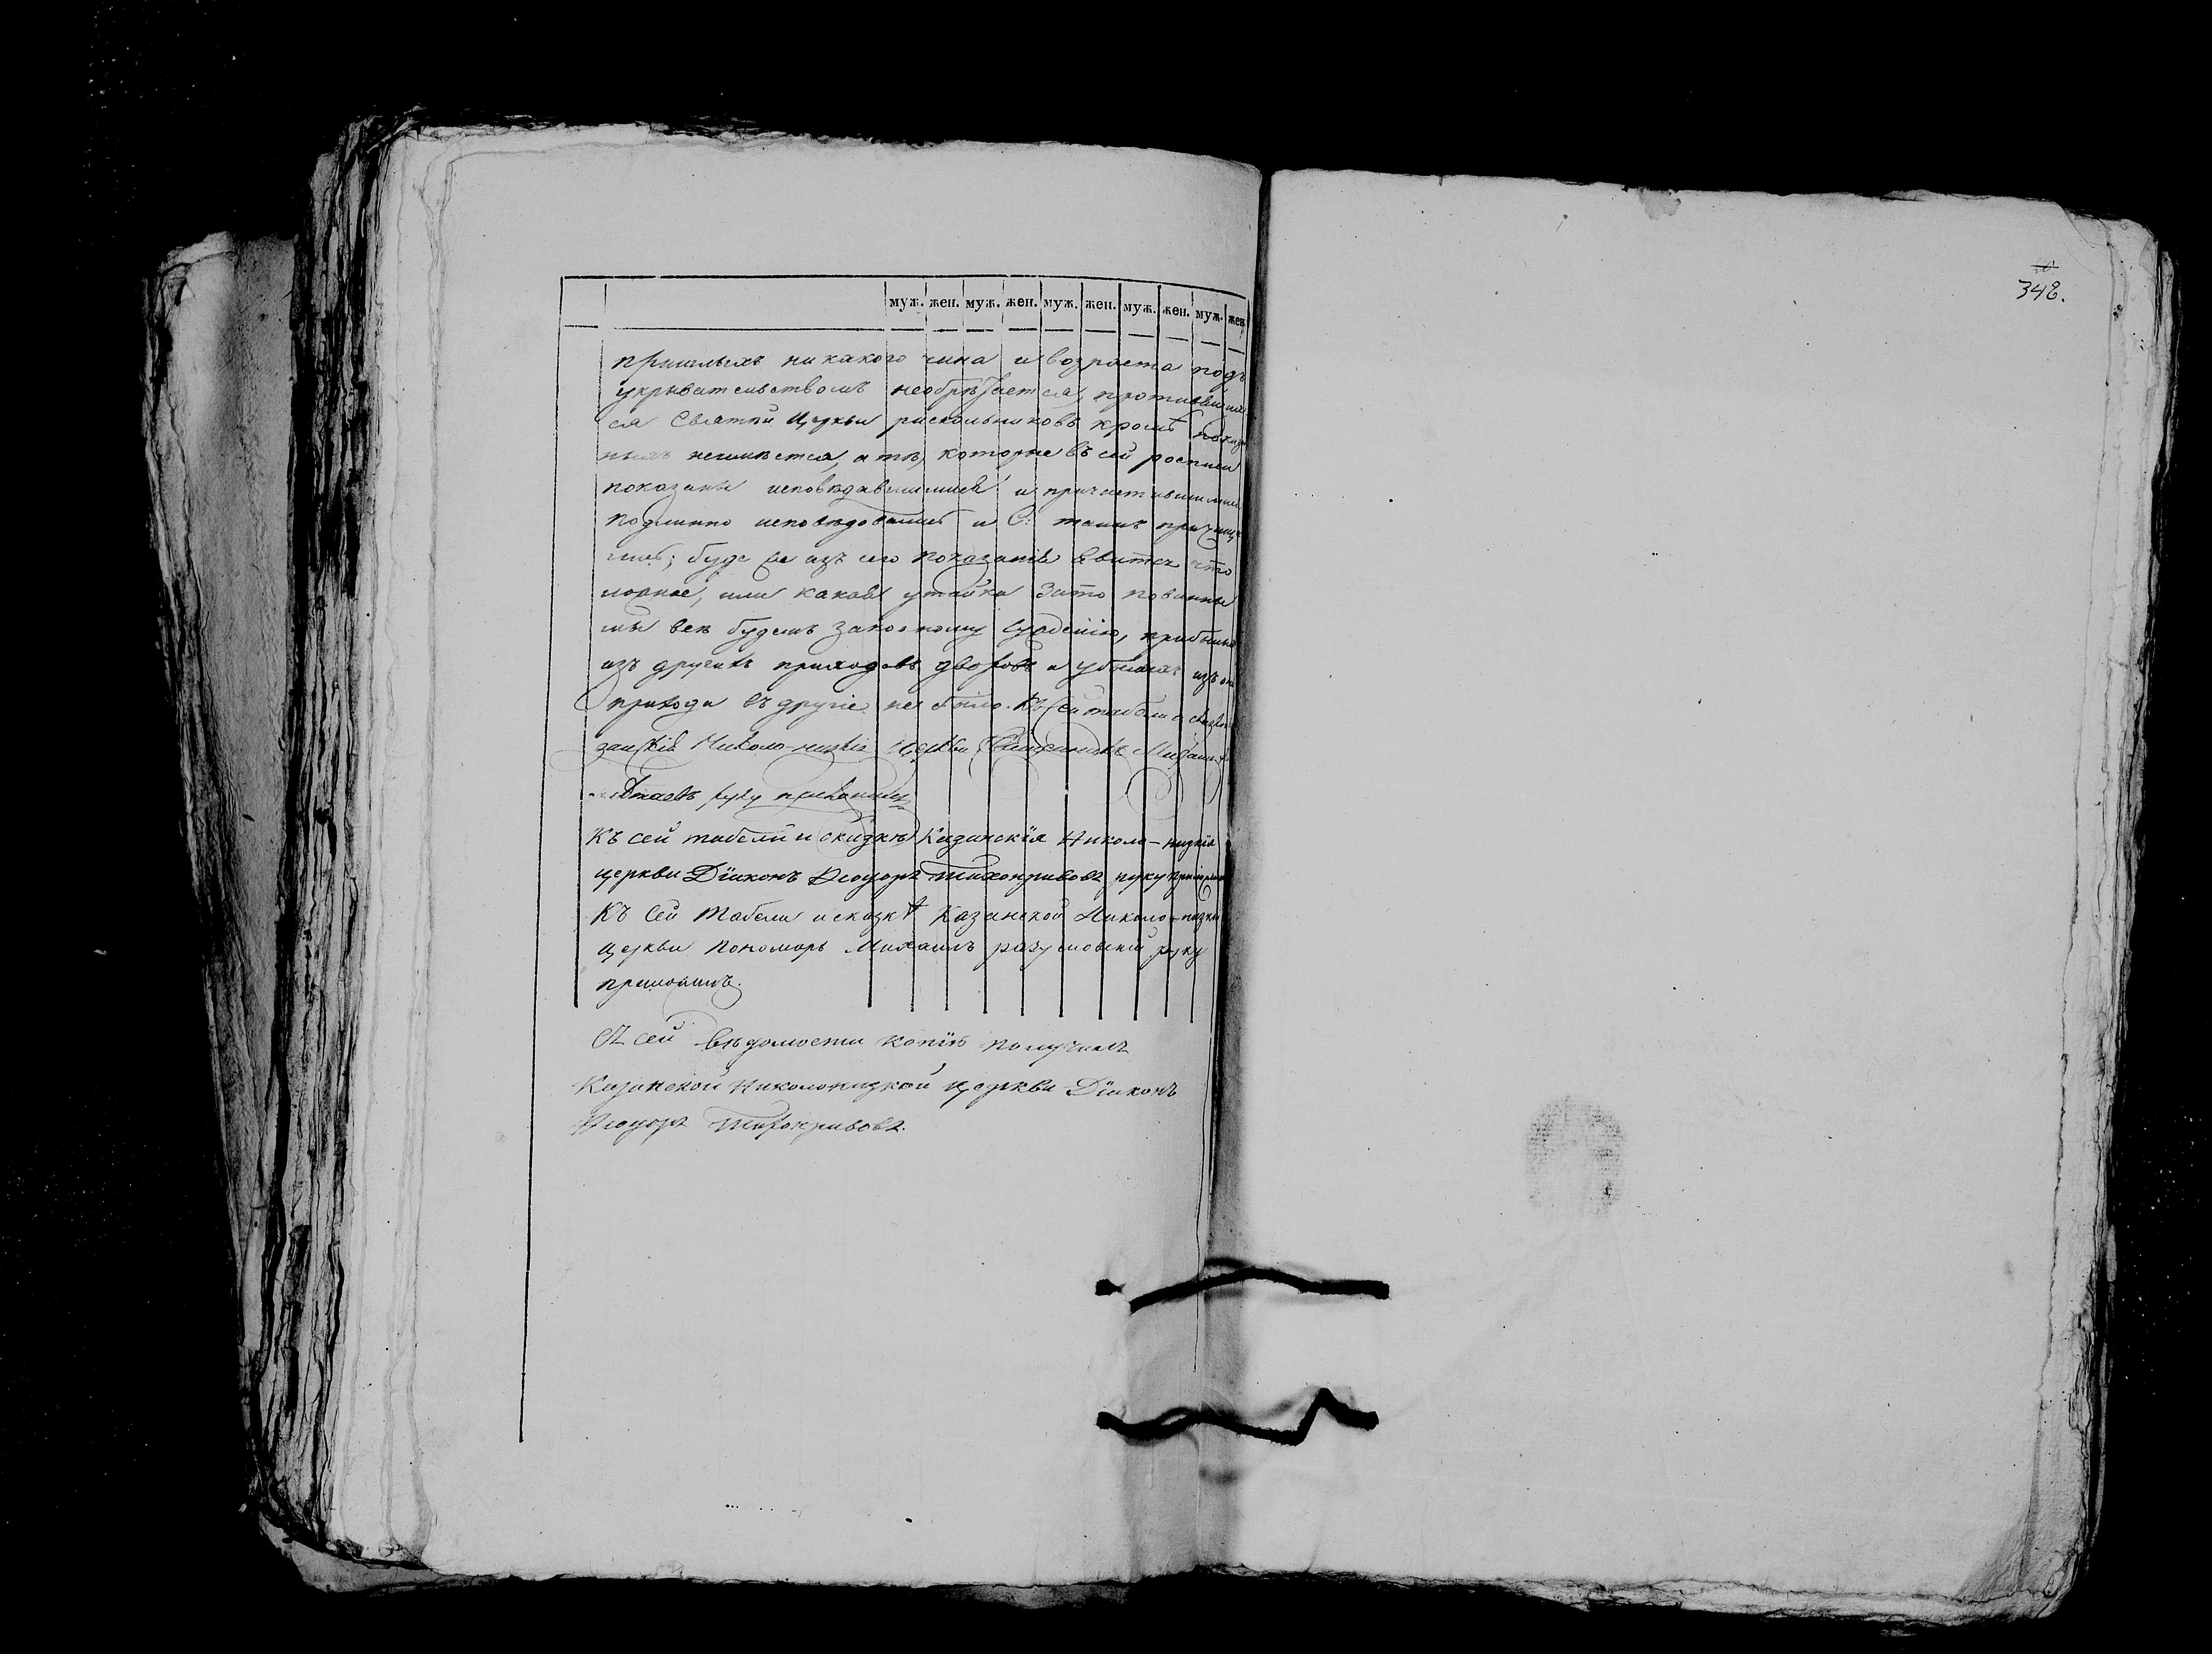 муж. жен. муж. жен. муж. жен. муж. жен. муж. жен.
348.
пришлыхъ никакого чина и возраста подъ
укрывательствомъ необрѣтается,
ся Святой Церкви раскольниковъ кромѣ
неимѣется, а тѣ, которые въ сей росписи
показаны исповѣдавшимися и причастившимися
подлинно исповѣдовались и С: таинъ
буде же изъ сего показанія явится что
ложное, или какая утайка зато повинны
мы всѣ будемъ законному сужденію,
изъ другихъ приходовъ дворовъ и убылыхъ изъ
прихода въ другіе не было. Къ сей табели и
Николо-низкія церкви Священникъ
руку приложилъ
Къ сей табели и скаскѣ Казанскія Николо-низкія
церкви Діаконъ Ѳеодоръ Тихонравовъ руку
Къ Сей Табели и сказкѣ Казанской Николо-низкой
церкви Пономарь Михаилъ разумовскій руку
приложилъ.
Съ сей вѣдомости копію получилъ
Казанской Николонизкой церкви Діаконъ
Ѳеодоръ Тихонравовъ.